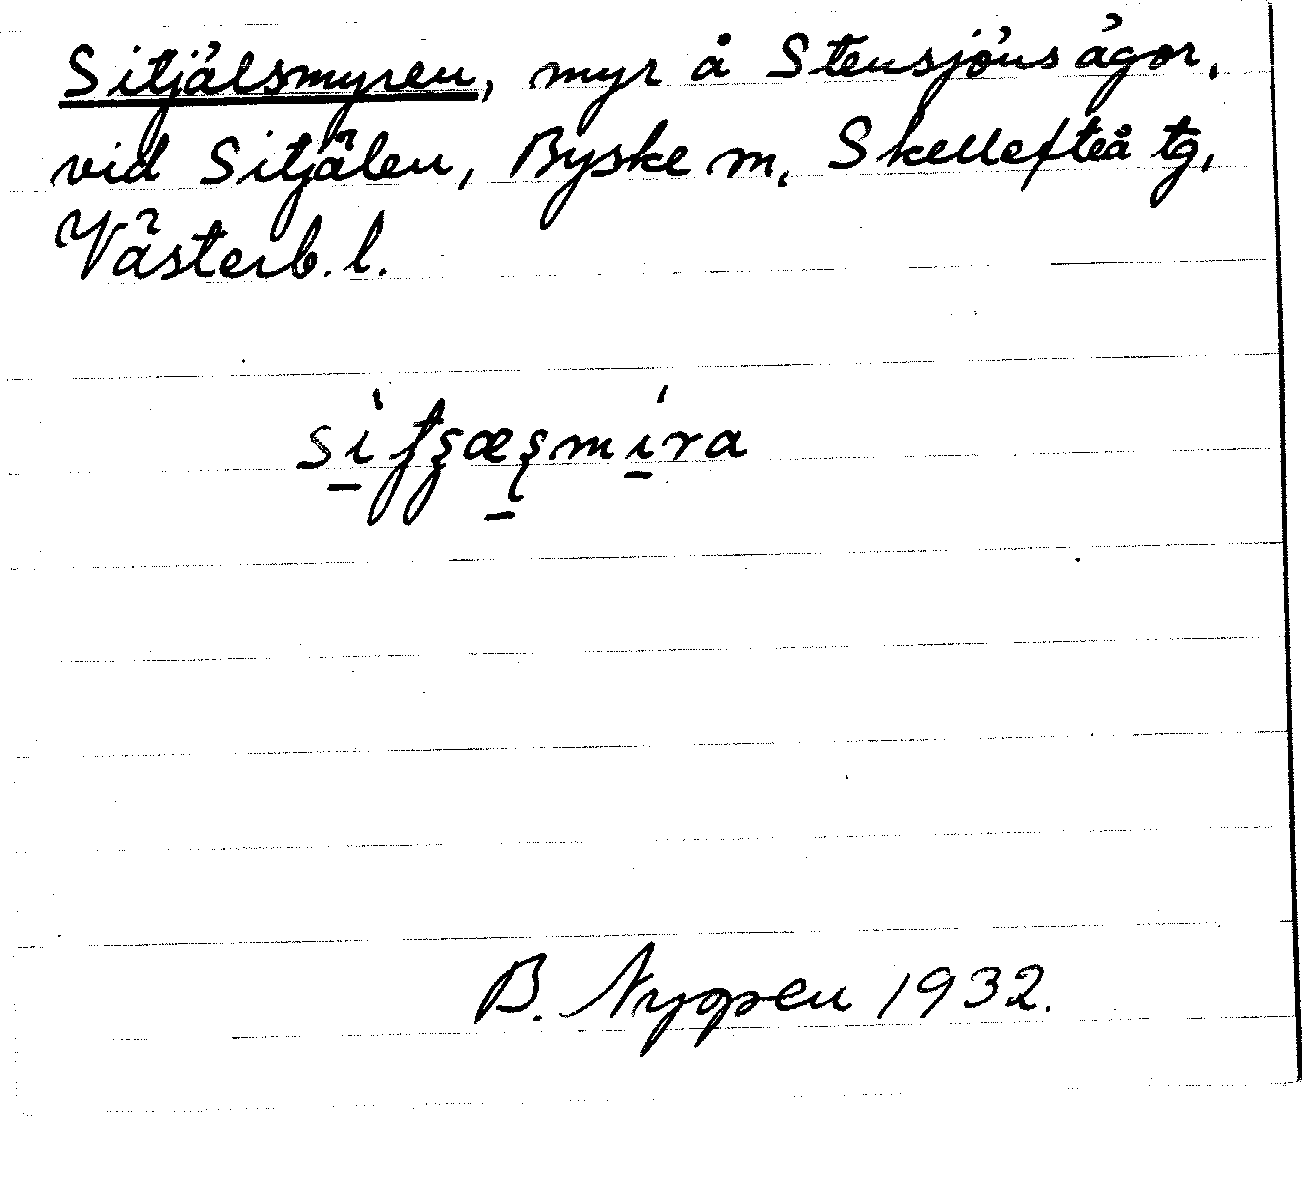 Sitjälsmyren, myr å Stensjöns ägor,
vid Sitjälen, Byske sn, Skellefteå tg,
Västerb. l.
B. Nyopen 1932.